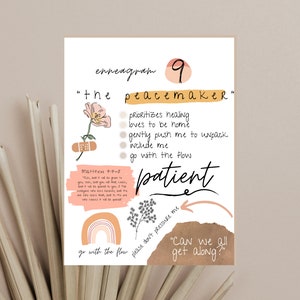 enneagram 9
"the peacemaker"
prioritizes healing
loves to be home
gently push me to unpack
include me
go with the flow
patient
Matthew 7:7-8
go with the flow
please don't pressure me
"Can we all
get along?"